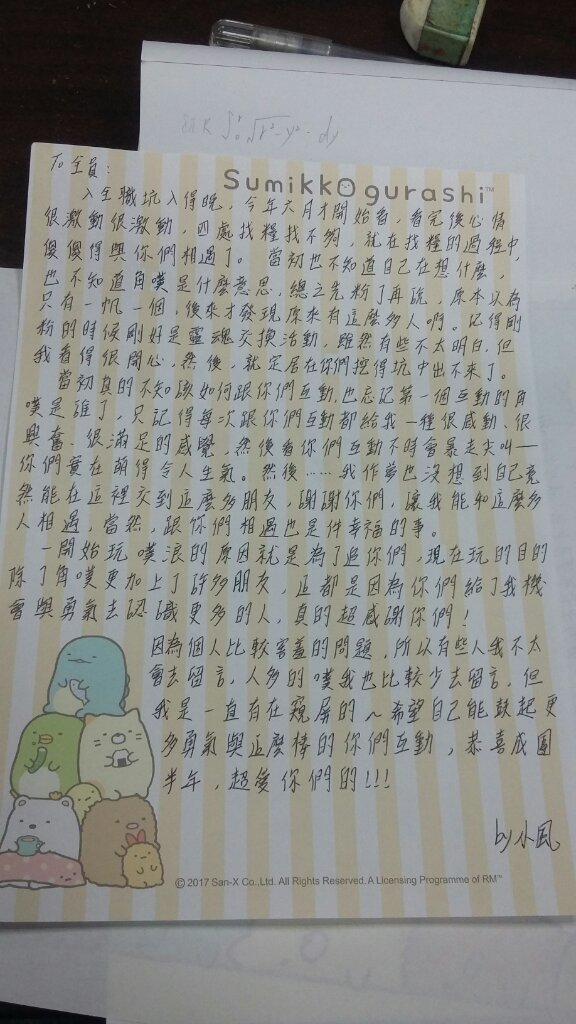 ∫₀ʳ √r²-y² · dy
To 全員:
Sumikkogurashi™
入全職坑入得晚，今年六月才開始看，看完後心情
很激動很激動，四處找糧找不夠，就在找糧的過程中，
傻傻得與你們相遇了。當初也不知道自己在想什麼，
也不知道角噗是什麼意思，總之先粉了再說，原本以為
只有一帆一個，後來才發現原來有這麼多人啊。記得剛
粉的時候剛好是靈魂交換活動，雖然有些不太明白，但
我看得很開心，然後，就定居在你們挖得坑中出不來了。
當初真的不知該如何跟你們互動，也忘記第一個互動的角
噗是誰了，只記得每次跟你們互動都給我一種很感動、很
興奮、很滿足的感覺，然後看你們互動不時會暴走尖叫——
你們實在萌得令人生氣。然後……我作夢也沒想到自己竟
然能在這裡交到這麼多朋友，謝謝你們，讓我能和這麼多
人相遇，當然，跟你們相遇也是件幸福的事。
一開始玩噗浪的原因就是為了追你們，現在玩的目的
除了角噗更加上了許多朋友，這都是因為你們給了我機
會與勇氣去認識更多的人，真的超感謝你們！
因為個人比較害羞的問題，所以有些人我不太
會去留言，人多的噗我也比較少去留言，但
我是一直有在窺屏的～希望自己能鼓起更
多勇氣與這麼棒的你們互動，恭喜成團
半年，超愛你們的!!!
by 小風
© 2017 San-X Co.,Ltd. All Rights Reserved. A Licensing Programme of RM™